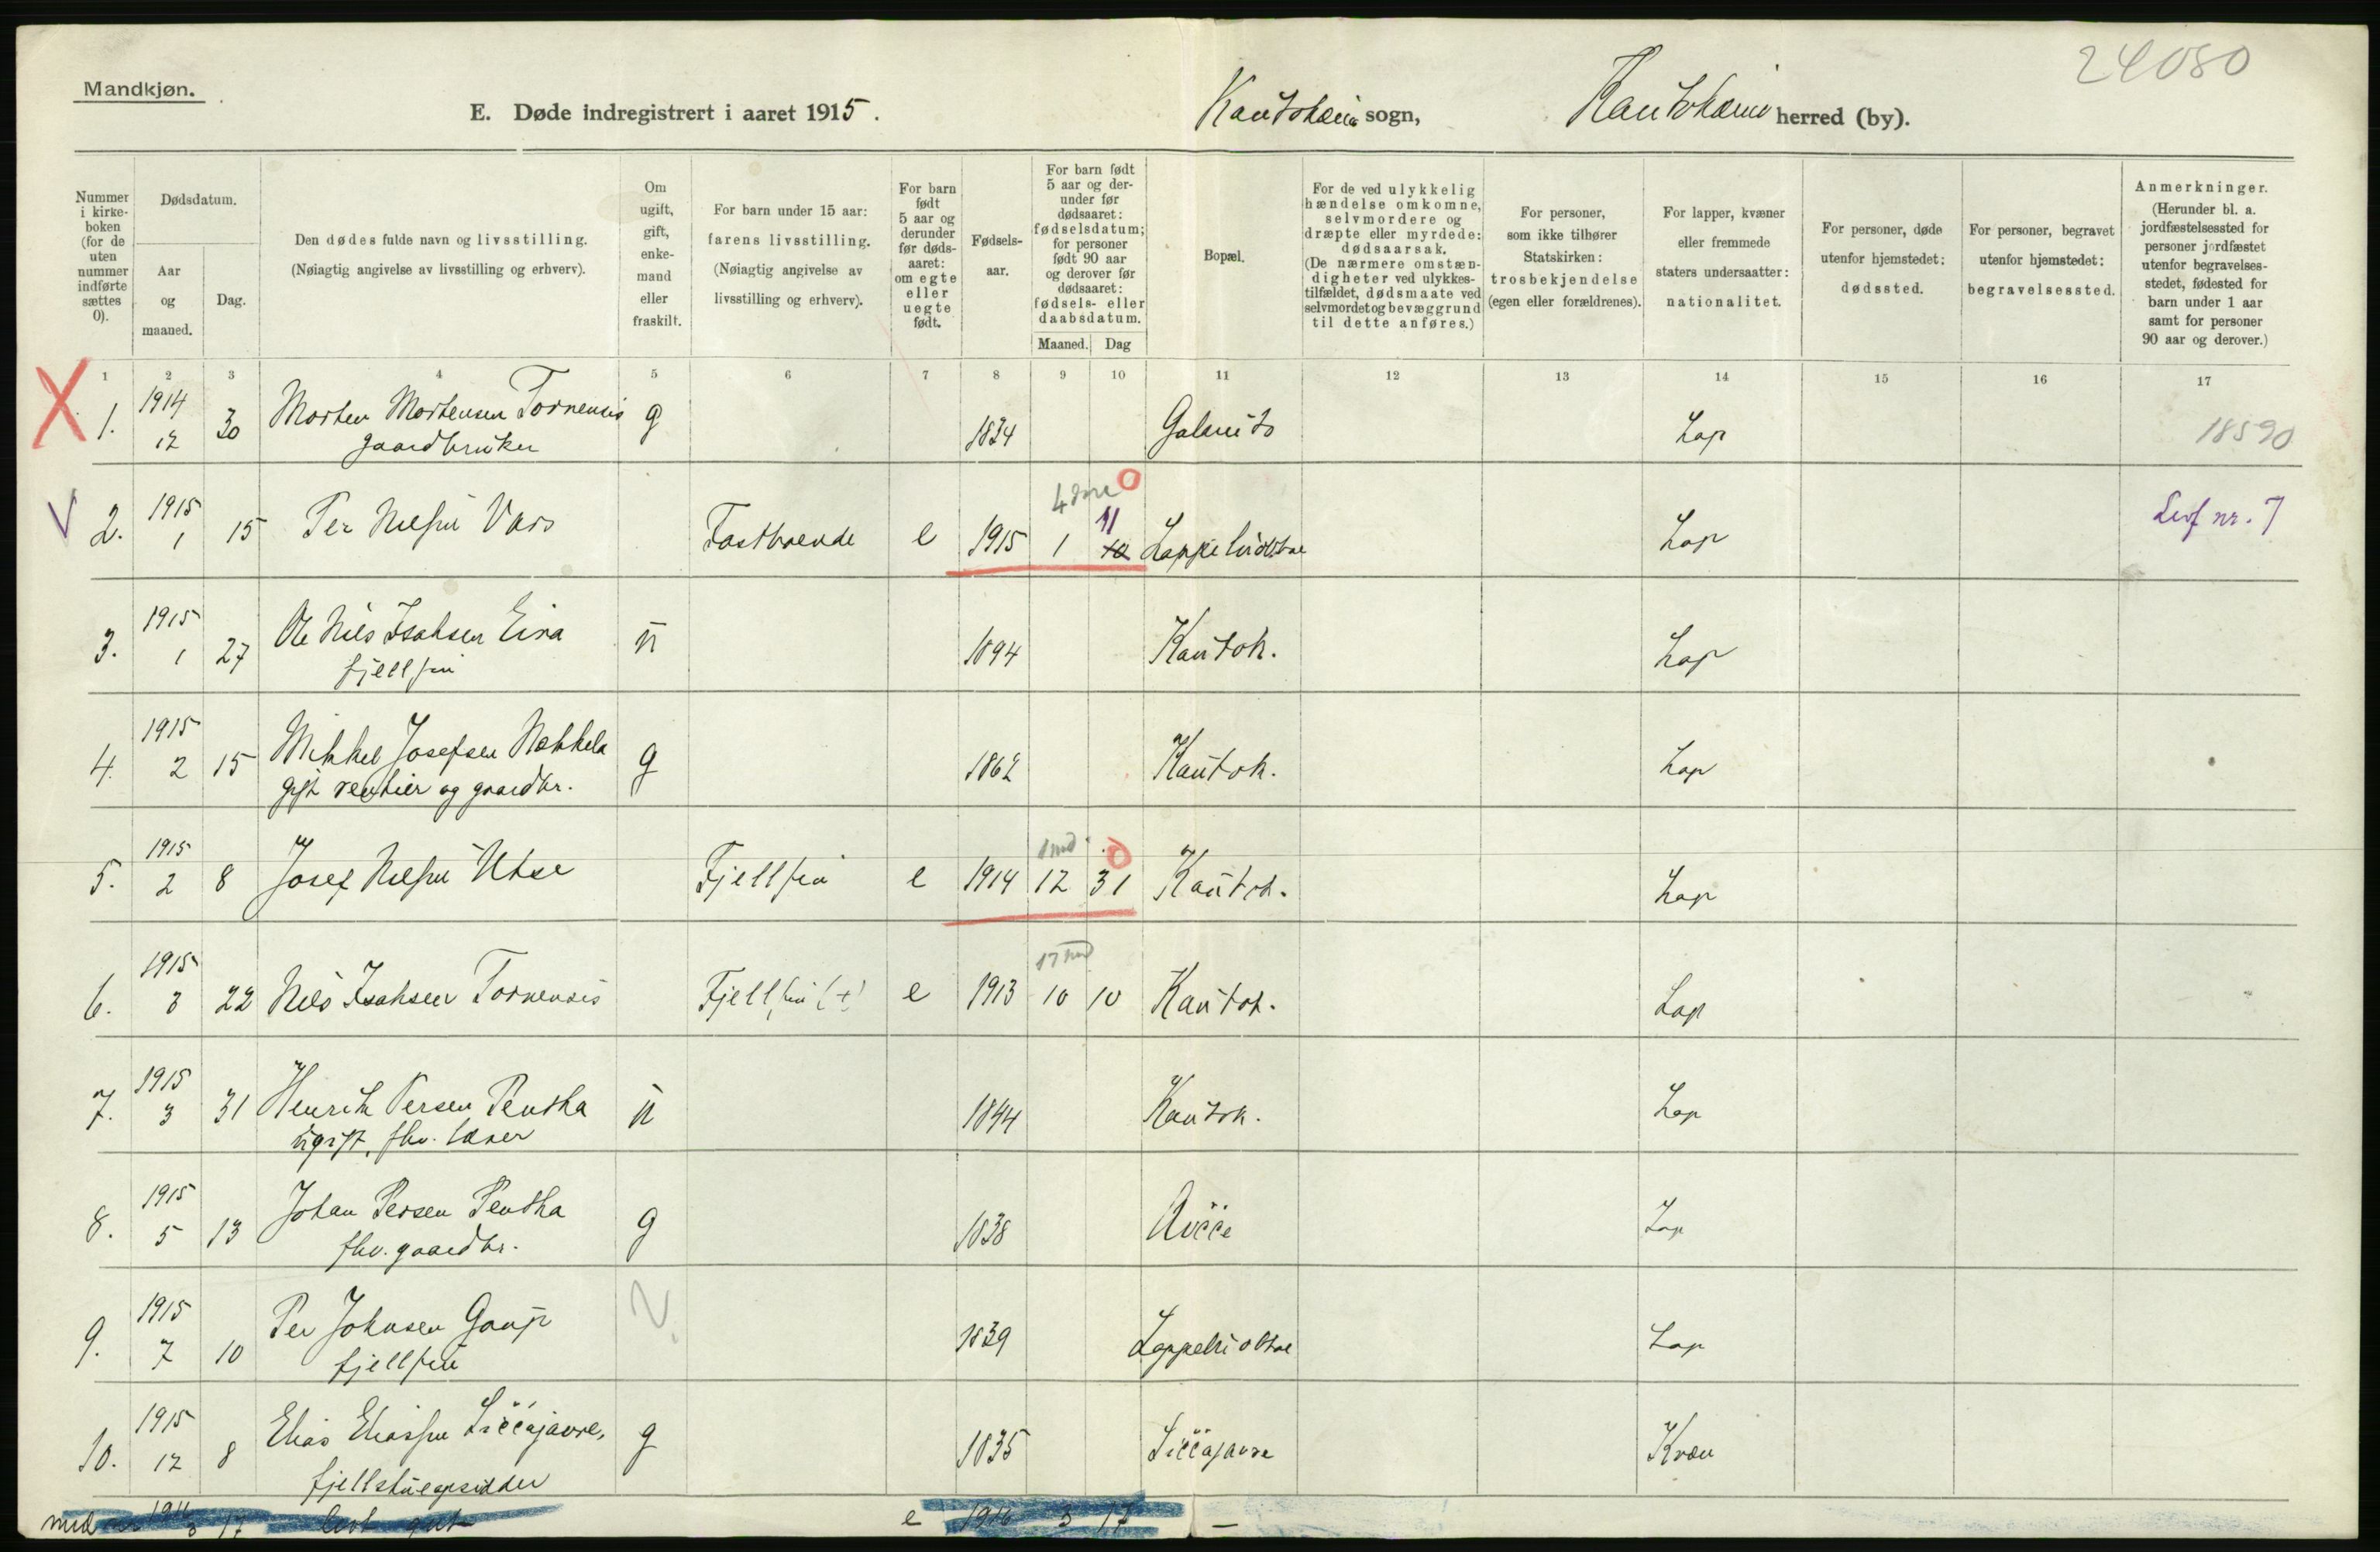 24080
Mandkjøn.
E. Døde indregistrert i aaret 1915.
Kautokeino sogn,
Kautokeino herred (by).
Nummer i kirke-boken (for de uten nummer indførte sættes 0).
Dødsdatum.
Aar og maaned.
Dag.
Den dødes fulde navn og livsstilling. (Nøiagtig angivelse av livsstilling og erhverv).
Om ugift, gift, enke-mand eller fraskilt.
For barn under 15 aar: farens livsstilling. (Nøiagtig angivelse av livsstilling og erhverv).
For barn født 5 aar og derunder før døds-aaret: om egte eller uegte født.
Fødsels-aar.
For barn født 5 aar og der-under før dødsaaret: fødselsdatum; for personer født 90 aar og derover før dødsaaret: fødsels- eller daabsdatum.
Maaned. Dag
Bopæl.
For de ved ulykkelig hændelse omkomne, selvmordere og dræpte eller myrdede: dødsaarsak. (De nærmere omstæn-digheter ved ulykkes-tilfældet, dødsmaate ved selvmordet og bevæggrund til dette anføres.)
For personer, som ikke tilhører Statskirken: trosbekjendelse (egen eller forældrenes).
For lapper, kvæner eller fremmede staters undersaatter: nationalitet.
For personer, døde utenfor hjemstedet: dødssted.
For personer, begravet utenfor hjemstedet: begravelsessted.
Anmerkninger. (Herunder bl. a. jordfæstelsessted for personer jordfæstet utenfor begravelses-stedet, fødested for barn under 1 aar samt for personer 90 aar og derover.)
1 2 3 4 5 6 7 8 9 10 11 12 13 14 15 16 17
X 1. 1914 12 30 Morten Mortensen Tornensis g 1834 Lap 18590
gaardbruker
V 2. 1915 1 15 Per Nilsen Vars Fastboende e 1915 1 11 10 4 dage 0 Lap Levf nr. 7
3. 1915 1 27 Ole Nils Isaksen Eira ū 1894 Kautok. Lap
fjellfin
4. 1915 2 15 Mikkel Josefsen Nækkela g 1862 Kautok. Lap
gift rentier og gaardbr.
5. 1915 2 8 Josef Nilsen Utse Fjellfin e 1914 12 31 1 md 0 Kautok. Lap
6. 1915 3 22 Nils Isaksen Tornensis Fjellfin (+) e 1913 10 10 17 md Kautok. Lap
7. 1915 3 31 Henrik Persen Pentha ū 1844 Kautok. Lap
ugift, fhv. lærer
8. 1915 5 13 Johan Persen Pentha g 1838 Avčče Lap
fhv. gaardbr.
9. 1915 7 10 Per Johnsen Gaup ? 1839 Lap
fjellfin
10. 1915 12 8 Elias Eliassen Siččajavre, g 1835 Siččajavre Kvæn
fjellstueopsidder
1916 3 17 e 1916 3 17 —